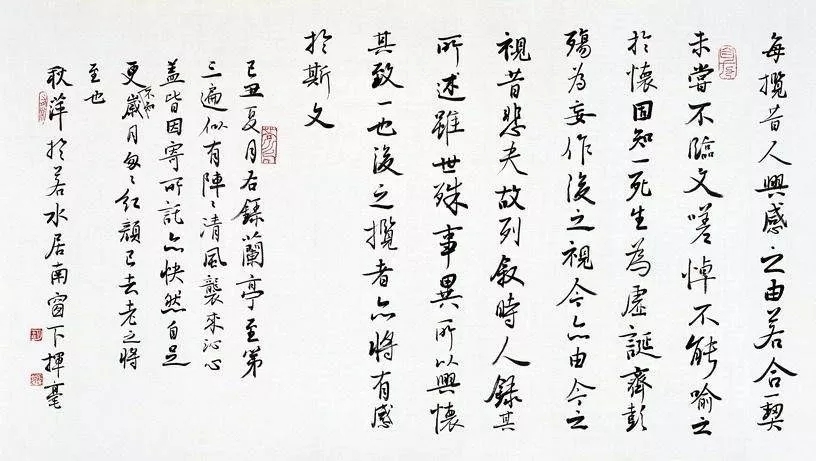 每攬昔人興感之由若合一契
未嘗不臨文嗟悼不能喻之
於懷固知一死生為虛誕齊彭
殤為妄作後之視今亦由今之
視昔悲夫故列敘時人錄其
所述雖世殊事異所以興懷
其致一也後之攬者亦將有感
於斯文
己丑夏月右錄蘭亭至第
三遍似有陣々清風襲來沁心
蓋皆因寄所託亦快然自足
更歲月匆々紅顏已去老之將
至也
耿萍於若水居南窗下揮毫